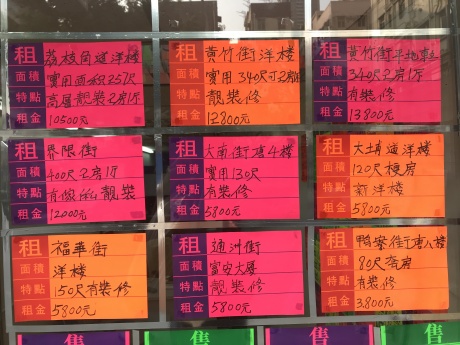 租 荔枝角道洋樓
面積 實用面积257尺
特點 高層靚裝2房1厅
租金 10500元
租 黃竹街洋楼
面積 實用340尺寸2房
特點 靚裝修
租金 12800元
租 黃竹街平地
面積 340尺2房1厅
特點 有裝修
租金 13800元
租 界限街
面積 400尺2房1厅
特點 有傢俬靚裝
租金 12000元
租 大南街唐4楼
面積 實用130尺
特點 有裝修
租金 5800元
租 大埔道洋樓
面積 120尺梗房
特點 新洋樓
租金 5800元
租 福華街
面積 洋樓
特點 150尺有裝修
租金 5800元
租 通洲街
面積 富安大厦
特點 靚裝修
租金 5800元
租 鴨寮街唐八楼
面積 80尺套房
特點 有裝修
租金 3,800元
售
售
售
售